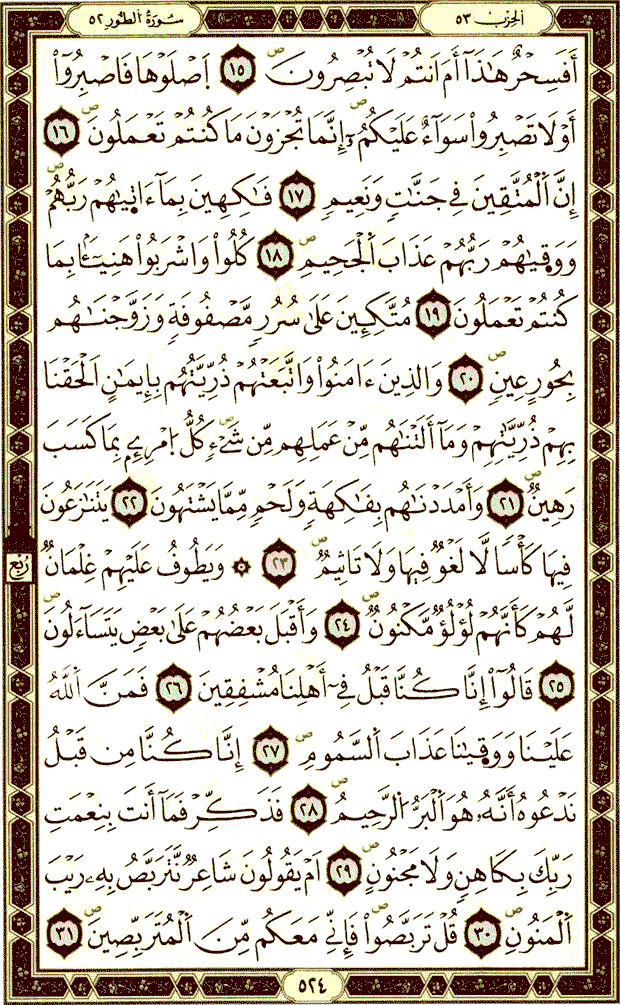 سُورَةُ الطُّورِ ٥٢ الحِزْب ٥٣
أَفَسِحْرٌ هَٰذَآ أَمْ أَنتُمْ لَا تُبْصِرُونَ ۖ ١٥ اَصْلَوْهَا فَاصْبِرُوٓاْ
أَوْ لَا تَصْبِرُواْ سَوَآءٌ عَلَيْكُمُۥٓ ۖ إِنَّمَا تُجْزَوْنَ مَا كُنتُمْ تَعْمَلُونَ ۖ ١٦
إِنَّ اَلْمُتَّقِينَ فِے جَنَّٰتٍ وَنَعِيمٍ ١٧ فَٰكِهِينَ بِمَآ ءَات۪يٰهُمْ رَبُّهُمْ ۖ
وَوَق۪يٰهُمْ رَبُّهُمْ عَذَابَ اَلْجَحِيمِ ۖ ١٨ كُلُواْ وَاشْرَبُواْ هَنِيٓـَٔاۢ بِمَا
كُنتُمْ تَعْمَلُونَ ١٩ مُتَّكِـِٔينَ عَلَىٰ سُرُرٍ مَّصْفُوفَةٍ وَزَوَّجْنَٰهُم
بِحُورٍ عِينٍ ۖ ٢٠ وَالذِينَ ءَامَنُواْ وَاتَّبَعَتْهُمْ ذُرِّيَّتُهُم بِإِيمَٰنٍ اَلْحَقْنَا
بِهِمْ ذُرِّيَّٰتِهِمْ وَمَآ أَلَتْنَٰهُم مِّنْ عَمَلِهِم مِّن شَےْءٍ ۖ كُلُّ اُ۪مْرِےِٕۢ بِمَا كَسَبَ
رَهِينٌ ۖ ٢١ وَأَمْدَدْنَٰهُم بِفَٰكِهَةٍ وَلَحْمٍ مِّمَّا يَشْتَهُونَ ٢٢ يَتَنَٰزَعُونَ
فِيهَا كَأْسًا لَّا لَغْوٌ فِيهَا وَلَا تَاثِيمٌ ۖ ٢٣ ۞ وَيَطُوفُ عَلَيْهِمْ غِلْمَانٌ
رُبُع
لَّهُمْ كَأَنَّهُمْ لُؤْلُؤٌ مَّكْنُونٌ ۖ ٢٤ وَأَقْبَلَ بَعْضُهُمْ عَلَىٰ بَعْضٍ يَتَسَآءَلُونَ ۖ
٢٥ قَالُوٓاْ إِنَّا كُنَّا قَبْلُ فِےٓ أَهْلِنَا مُشْفِقِينَ ٢٦ فَمَنَّ اَللَّهُ
عَلَيْنَا وَوَق۪يٰنَا عَذَابَ اَلسَّمُومِ ۖ ٢٧ إِنَّا كُنَّا مِن قَبْلُ
نَدْعُوهُ أَنَّهُۥ هُوَ اَلْبَرُّ اُلرَّحِيمُ ۖ ٢٨ فَذَكِّرْ فَمَآ أَنتَ بِنِعْمَتِ
رَبِّكَ بِكَاهِنٍ وَلَا مَجْنُونٍ ۖ ٢٩ اَمْ يَقُولُونَ شَاعِرٌ نَّتَرَبَّصُ بِهِۦ رَيْبَ
اَلْمَنُونِ ۖ ٣٠ قُلْ تَرَبَّصُواْ فَإِنِّے مَعَكُم مِّنَ اَلْمُتَرَبِّصِينَ ۖ ٣١
٥٢٤